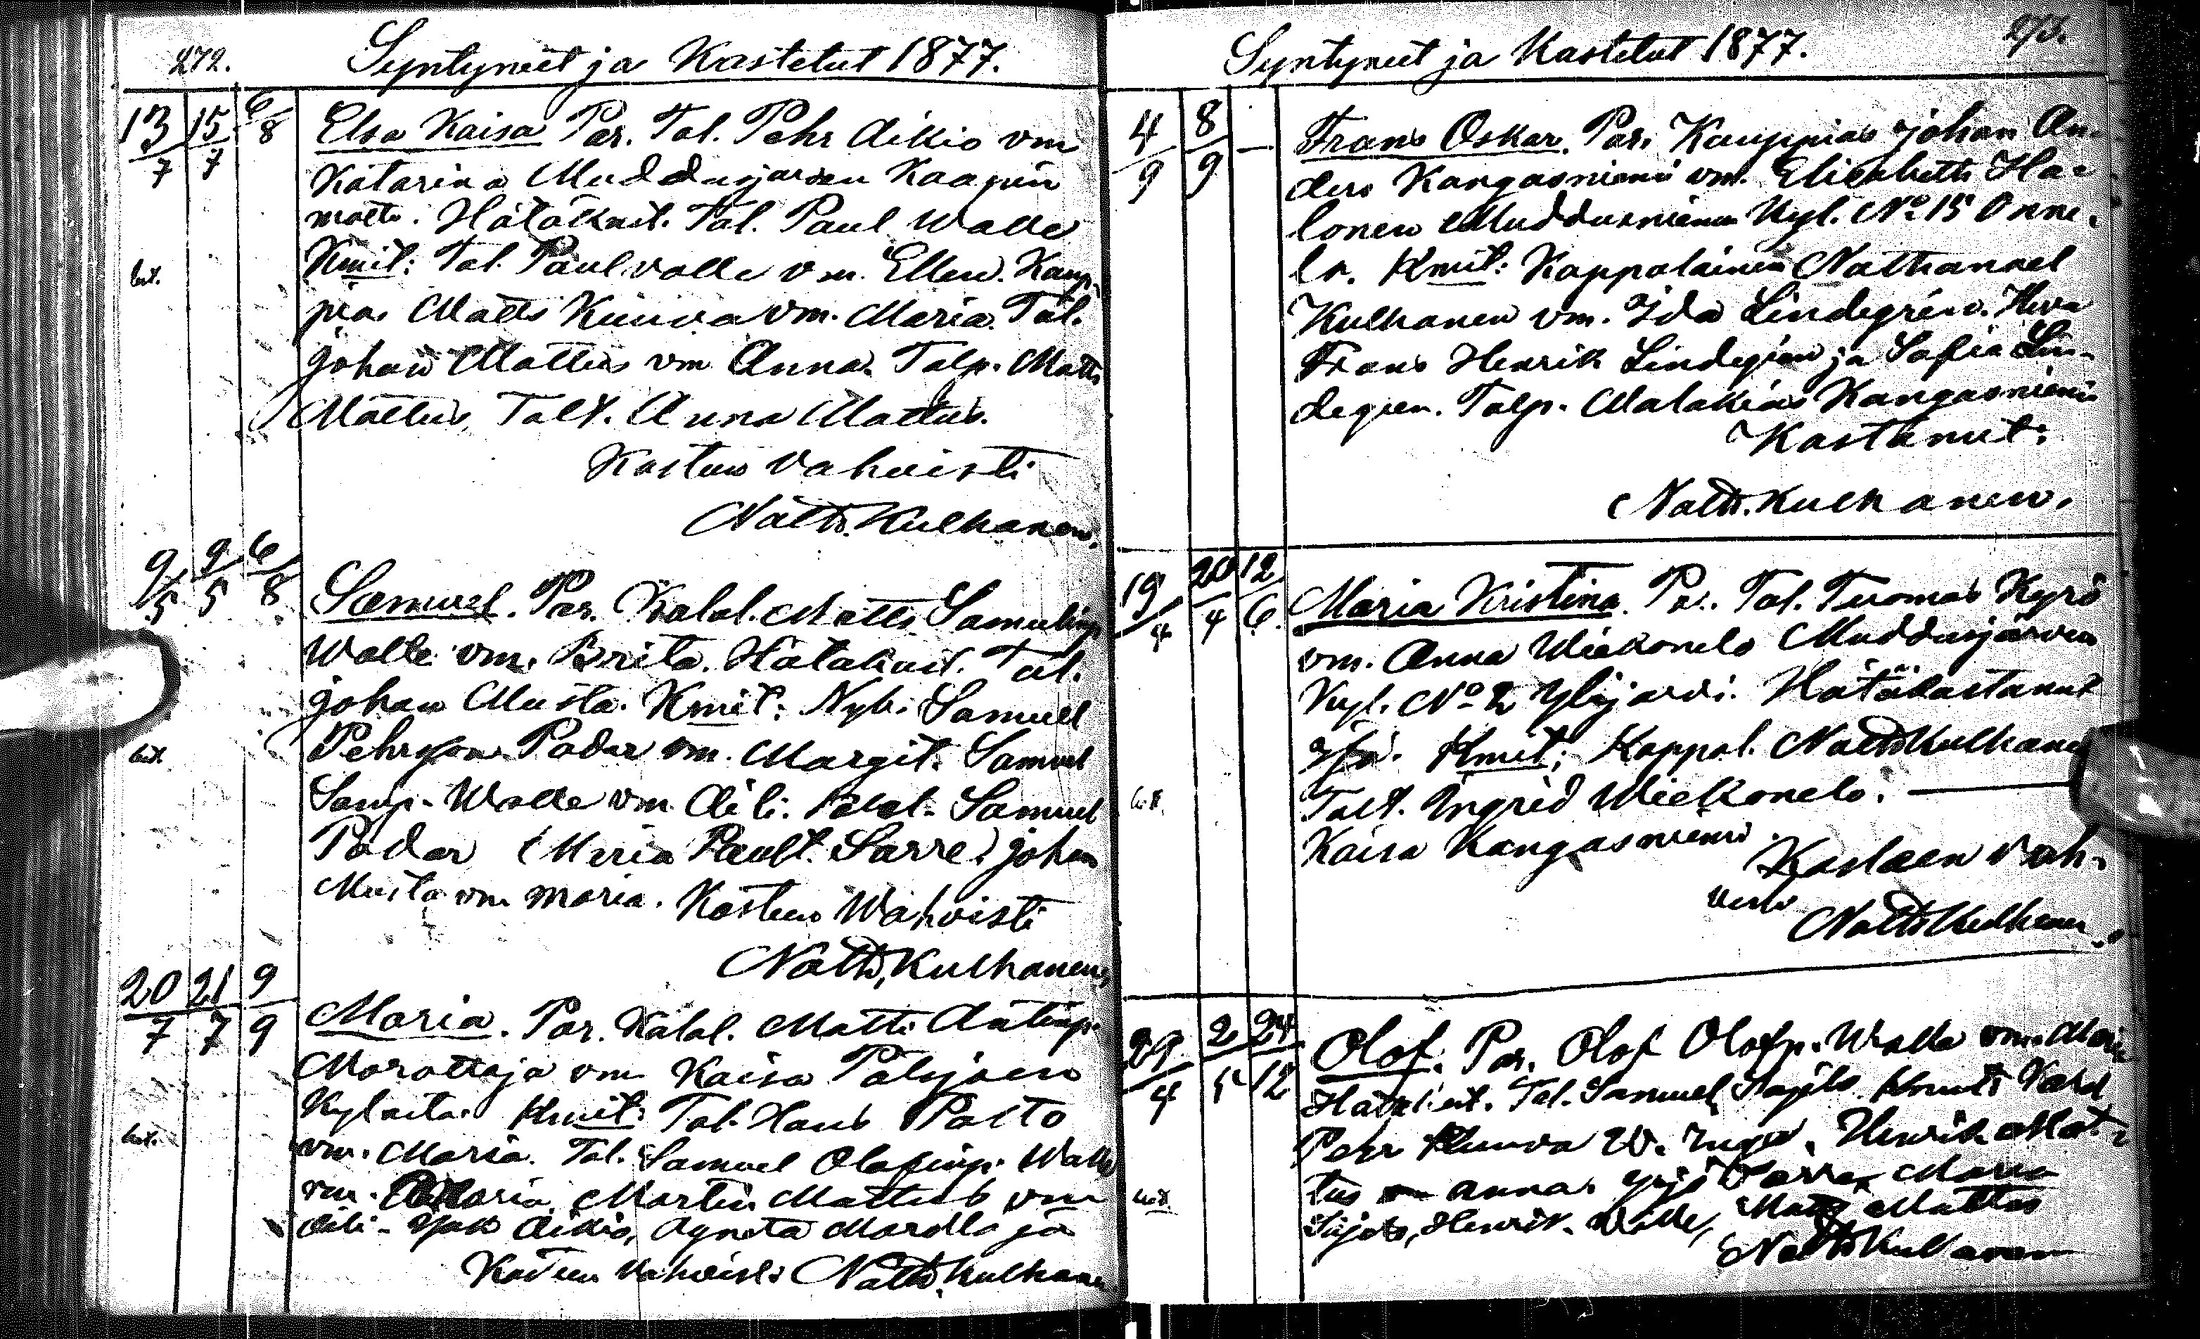 272.
Syntyneet ja Kastetut 1877.
13/7 15/7 6/8
Elsa Kaisa Par. Tal. Pehr Aikio vm
Katarina Muddusjärven Kaapin
matti. Hätäkast. Tal. Paul Walle
Kmit: Tal. Paul valle vm. Ellen. Kaup
pias Matts Kuuva vm. Maria. Tal.
Johan Mattus vm Anna. Talp. Matts
Mattus, Talt. Anna Mattus.
Kasteen vahvisti
Nath. Kulhanen.
9/5 9/5 6/8
Samuel. Par. Kalal. Matts Samulinp
Walle vm. Brita. Hätäkast. Tal.
Johan Musta. Kmit: Nyb. Samuel
Pehrson Padar vm. Margit. Samuel
Samp. Walle vm Aili. Kalal. Samuel
Padar Maria Pault. Sarre Johan
Musta vm Maria. Kasteen Wahvisti
Nath. Kulhanen,
20/7 21/7 9/9
Maria. Par. Kalal. Matti Antinp.
Morottaja vm Kaisa Palojoen
Kylästä. Kmit: Tal. Hans Paito
vm. Maria. Tal. Samuel Olafinp. Walle
vm. Maria Martin Mattus vm
Aili Aikio, Agneta Mordla ja
Kasteen Vahvisti Nath. Kulhanen
273.
Syntyneet ja Kastetut 1877.
4/9 8/9 —
Frans Oskar. Par. Kauppias Johan An-
ders Kangasniemi vm. Elisabeth Ha-
lonen Muddusniemen Kyl. No 15 Onne-
la. Kmit: Kappalainen Nathanael
Kulhanen vm. Ida Lindegren. Herra
Frans Henrik Lindegren ja Sofia Lin-
degren. Talp. Malakias Kangasniemi
Kastanut:
Nath. Kulhanen.
19/4 20/4 12/6.
Maria Kristina. Par. Tal. Tuomas Kyrö
vm. Anna Wiekonelo Muddusjärven
Kyl. No 2 Ylijärvi. Hätäkastanut
Isä. Kmit: Kappal. Nath Kulhanen
Talt. Ingrid Wiekonelo.
Kaisa Kangasniemi.
Kasteen vah-
visti
Nath Kulhanen.
29/4 2/5 24/12
Olof. Par. Olof Olofp. Walle vm. Mari
Hätäkast. Tal. Samuel Saijets Kmit:
Pehr Kuuva W. Inga. Henrik Mat-
tus Anna. Yrjö Sarre, Maria
Saijets, Henrik. Walle, Mattus
Nath Kulhanen